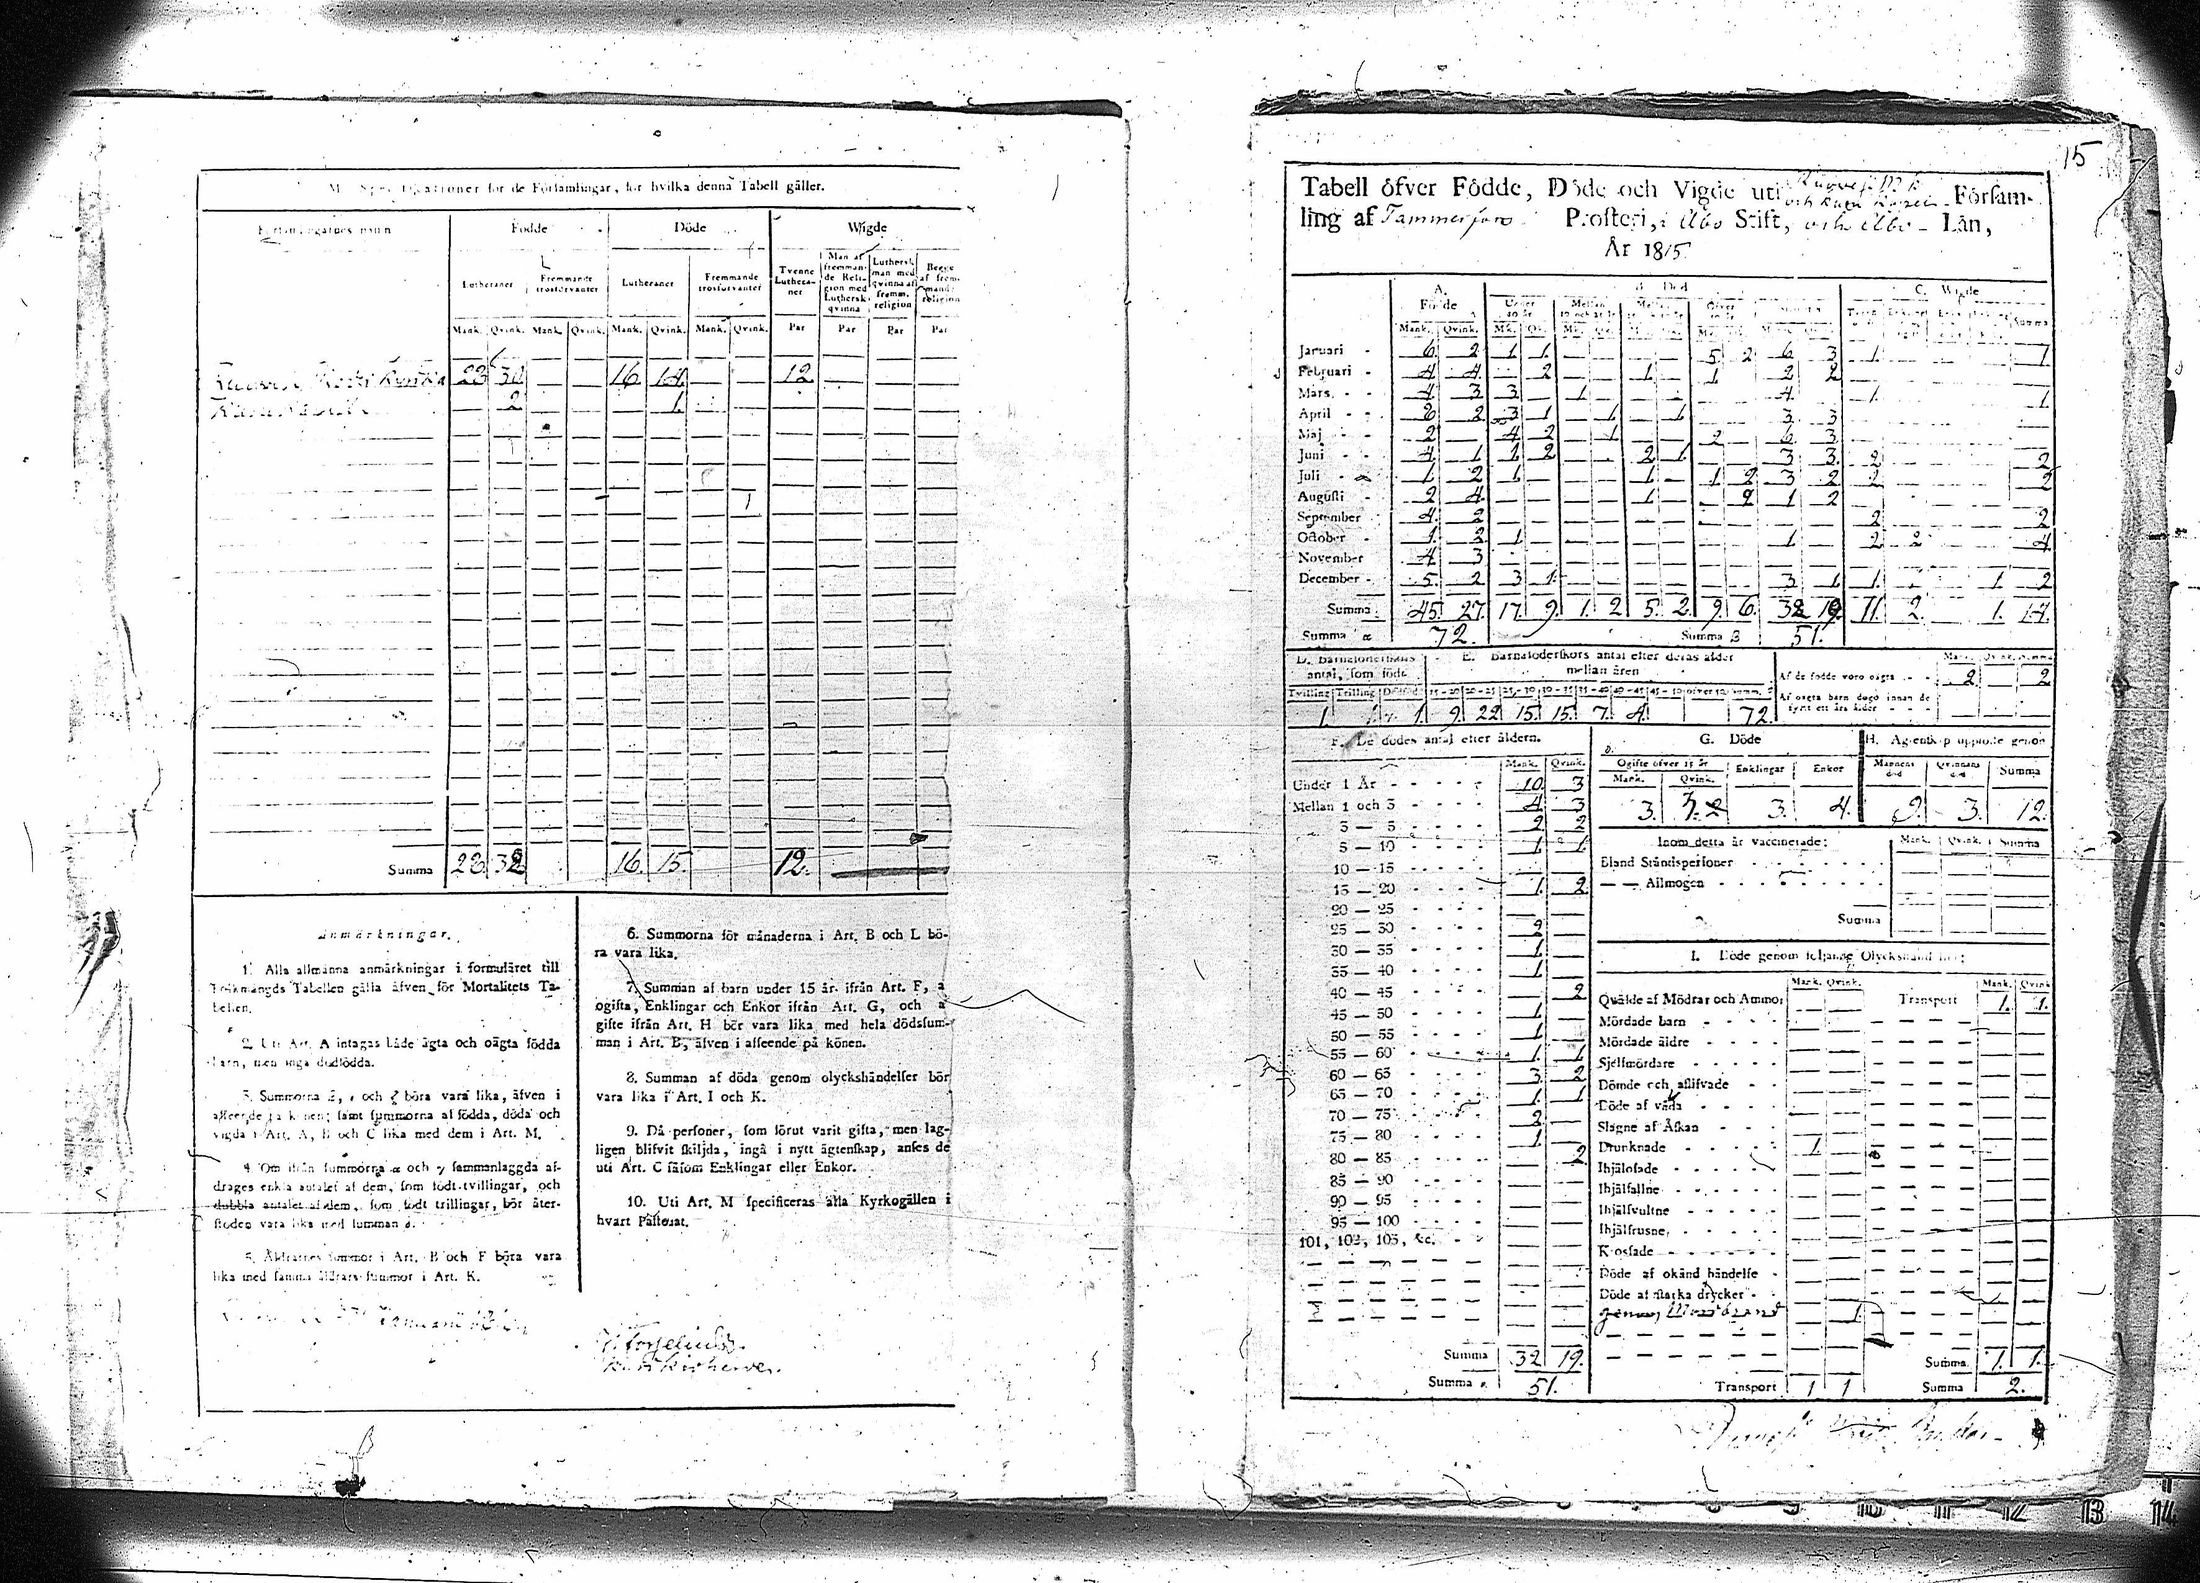 M. Specificationer för de Församlingar, för hvilka denna Tabell gäller.
Församlingarnes namn
Födde Döde Wigde
Lutheraner Fremmande trosförvanter Lutheraner Fremmande trosförvanter Tvenne Lutheraner Man af fremmande Religion med Luthersk qvinna Luthersk man med qvinna af fremm. religion Begge af fremmand: religion
Mank. Qvink. Mank. Qvink. Mank. Qvink. Mank. Qvink. Par Par Par Par
23 30 16 14 12
2 1
Summa 23 32 16 15 12
Anmärkningar.
1. Alla allmänna anmärkningar i formuläret till
Folkmängds Tabellen gälla äfven för Mortalitets Ta-
bellen.
2. Uti Art. A intagas både ägta och oägta födda
barn, men inga dödfödda.
3. Summorna β, ε och ζ böra vara lika, äfven i
affeende på könen; samt summorna af födda, döda och
vigda i Art. A, B och C lika med dem i Art. M.
4. Om ifrån summorna α och γ sammanlaggda af-
drages enkla antalet af dem, som födt tvillingar, och
dubbla antalet af dem, som födt trillingar, bör åter-
stoden vara lika med summan δ.
5. Åldrarnes summor i Art. B och F böra vara
lika med samma åldrars summor i Art. K.
6. Summorna för månaderna i Art. B och L bö-
ra vara lika.
7. Summan af barn under 15 år ifrån Art. F, a
ogifta, Enklingar och Enkor ifrån Art. G, och a
gifte ifrån Art. H bör vara lika med hela dödsfum-
man i Art. B, äfven i affeende på könen.
8. Summan af döda genom olyckshändelser bör
vara lika i Art. I och K.
9. Då personer, som förut varit gifta, men lag-
ligen blifvit skiljda, ingå i nytt ägtenskap, anses de
uti Art. C såsom Enklingar eller Enkor.
10. Uti Art. M specificeras alla Kyrkogällen i
hvart Pastorat.
15
Tabell öfver Födde, Döde och Vigde uti Församling
af Tammerfors Prosteri, i Åbo Stift, och Åbo Län,
År 1815.
A. Födde B. Död C. Wigde
Mank. Qvink.
Januari 6 2 1 1 5 2 6 3 1 1
Februari 4 4 2 1 1 2 2
Mars 4 3 3 1 4 1 1
April 2 3 1 1 1 3 3
Maj 2 4 2 1 2 6 3
Juni 4 1 1 2 2 1 3 3 2 2
Juli 1 2 1 1 1 2 3 2 2 2
Augusti 2 4 1 2 1 2
September 4 2 2 2
October 1 2 1 1 2 2 4
November 4 3
December 5 2 3 1 3 1 1 1 2
Summa 45 27 17 9 1 2 5 2 9 6 32 19 11 2 1 14
Summa α 72. Summa β 51.
D. Barnaföderskors antal, som födt
Tvilling Trilling Dödfödd
1 1
E. Barnaföderskors antal efter deras ålder mellan åren
15-20 20-25 25-30 30-35 35-40 40-45 45-50 öfver 50 Summ. δ
9 22 15 15 7 4 72
Mank. Qvink. Summa
Af de födde voro oägta 2 2
Af oägta barn dogo innan de fyllt ett års ålder
F. De dödes antal efter åldern.
Mank. Qvink.
Under 1 År 10 3
Mellan 1 och 3 4 3
3 — 5 2 2
5 — 10 1 1
10 — 15
15 — 20 1 2
20 — 25
25 — 30 2
30 — 35 1
35 — 40 1
40 — 45 2
45 — 50 1
50 — 55 1
55 — 60 1 1
60 — 65 3 2
65 — 70 1 1
70 — 75 2
75 — 80 1
80 — 85 2
85 — 90
90 — 95
95 — 100
101, 102, 103, &c.
Summa 32 19.
Summa 51.
G. Döde
Ogifte öfver 15 år Enklingar Enkor
Mank. Qvink.
3. 2 3. 4.
H. Ägtenskap upplöste genom
Mannens död Qvinnans död Summa
9. 3. 12.
Inom detta år vaccinerade: Mank. Qvink. Summa
Bland Ståndspersoner
— — Allmogen
Summa
I. Döde genom följande Olyckshändelser:
Mank. Qvink. Mank. Qvink.
Qvälde af Mödrar och Ammor Transport 1. 1.
Mördade barn
Mördade äldre
Sjelfmördare
Dömde och aflifvade
Döde af våda
Slagne af Åskan
Drunknade 1.
Ihjälofade
Ihjälfallne
Ihjälsvultne
Ihjälfrusne
Krossade
Döde af okänd händelse
Döde af starka drycker
genom 1
Summa 1. 1.
Transport 1 1 Summa 2.